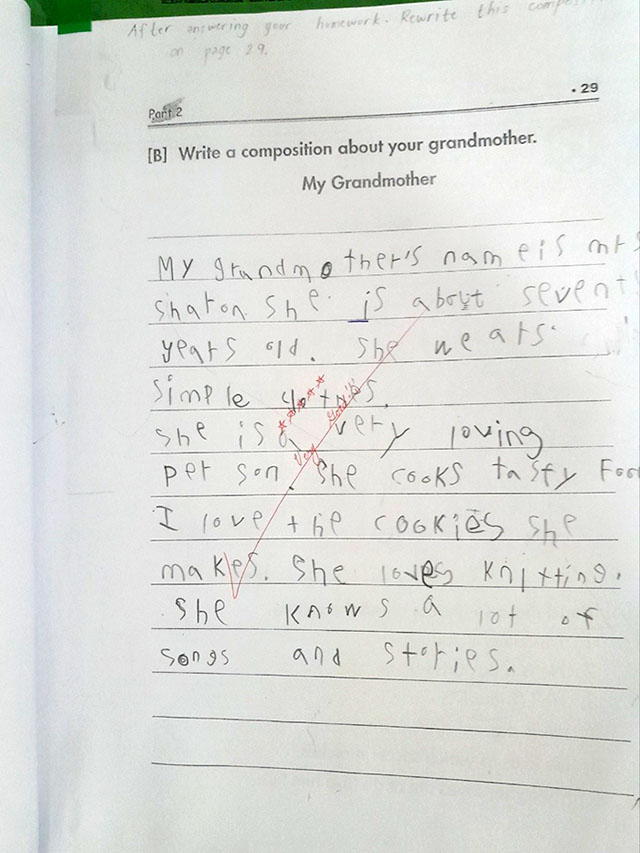 After answering your homework. Rewrite this
on page 29.
Part 2
• 29
[B] Write a composition about your grandmother.
My Grandmother
My grandmother's name is mrs
sharon she is about sevent
years old. she wears
simple
she is a very loving
person. she cooks tasty Foo
I love the cookies she
makes. she loves knitting.
she knows a lot of
songs and stories.
Very Good!!